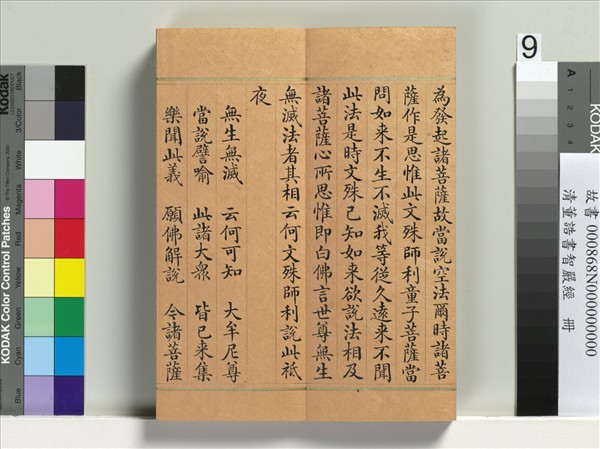 為發起諸菩薩故當說空法爾時諸菩
薩作是思惟此文殊師利童子菩薩當
問如来不生不滅我等從久遠来不聞
此法是時文殊已知如来欲說法相及
諸菩薩心所思惟即白佛言世尊無生
無滅法者其相云何文殊師利說此祇
夜
無生無滅 云何可知 大牟尼尊
當說譬喻 此諸大眾 皆已来集
樂聞此義 願佛解說 今諸菩薩
9
故書 000868N000000000
清董誥書智嚴經 冊
A 1 2 3 4
KODAK
Kodak
KODAK Color Control Patches
Blue
Cyan
Green
Yellow
Red
Magenta
White
3/Color
Black